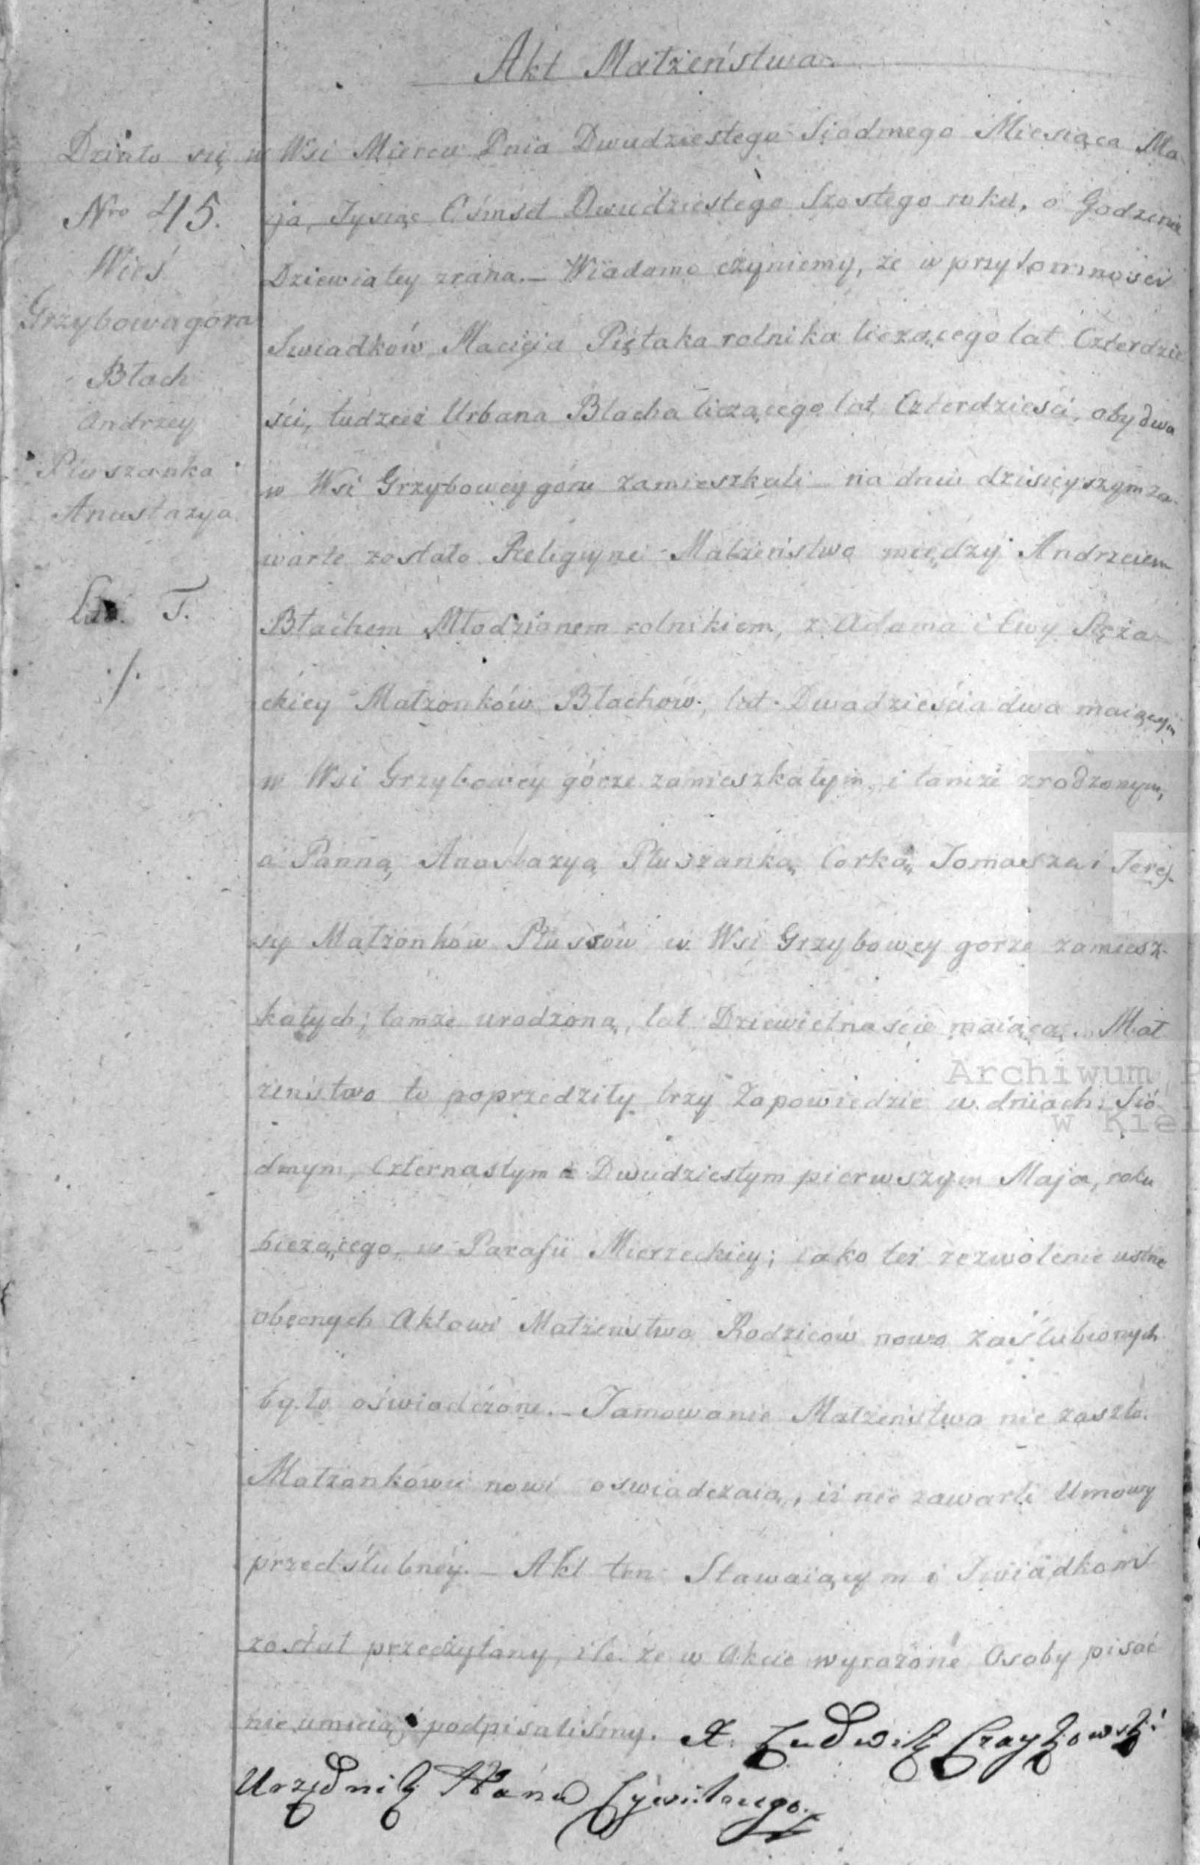 Akt Małżeństwa
Działo się w Wsi Mierzw Dnia Dwudziestego Siódmego Miesiąca Ma-
Nro 45.
ja, Tysiąc Ośmset Dwudziestego Szostego roku, o Godzinie
Wieś
Dziewiątey zrana. – Wiadomo czyniemy, że w przytomności
Grzybowagóra
Swiadków Macieja Piętaka rolnika liczącego lat Czterdzie
Błach
Andrzey
ści, tudzież Urbana Błacha liczącego lat Czterdzieści, obydwa
Płuszanka
w Wsi Grzybowey górze zamieszkali – na dniu dzisieyszym za-
Anastazya
warte zostało Religijne Małżeństwo między Andrzeiem
T.
Błachem Młodzianem rolnikiem, z Adama i Ewy
ckiey Małżonków Błachów, lat Dwadzieścia dwa maiącym
w Wsi Grzybowey górze zamieszkałym, i tamże zrodzonym,
a Panną Anastazyą Płuszanką Corką Tomasza i Tere-
sy Małżonków Płussów w Wsi Grzybowey gorze zamiesz-
kałych; tamże urodzoną, lat Dziewietnaście maiącą. Mał
żeństwo to poprzedziły trzy Zapowiedzie w dniach Sió
dmym, Czternastym i Dwudziestym pierwszym Maja, roku
bieżącego w Parafii Mierzeckiey; iako też zezwolenie ustne
obecnych Aktowi Małżeństwa Rodziców nowo zaślubionych
było oświadczone. – Tamowanie Małżeństwa nie zaszło.
Małżonkowie nowi oswiadczaią, iż nie zawarli Umowy
przedślubnéy. – Akt ten Stawaiącym i Swiadkom
został przeczytany, ile że w Akcie wyrażone Osoby pisać
nie umieią podpisaliśmy. X. Ludwik Czaykowski
Urzędnik Stanu Cywilnego.
Archiwum P
w Kiel